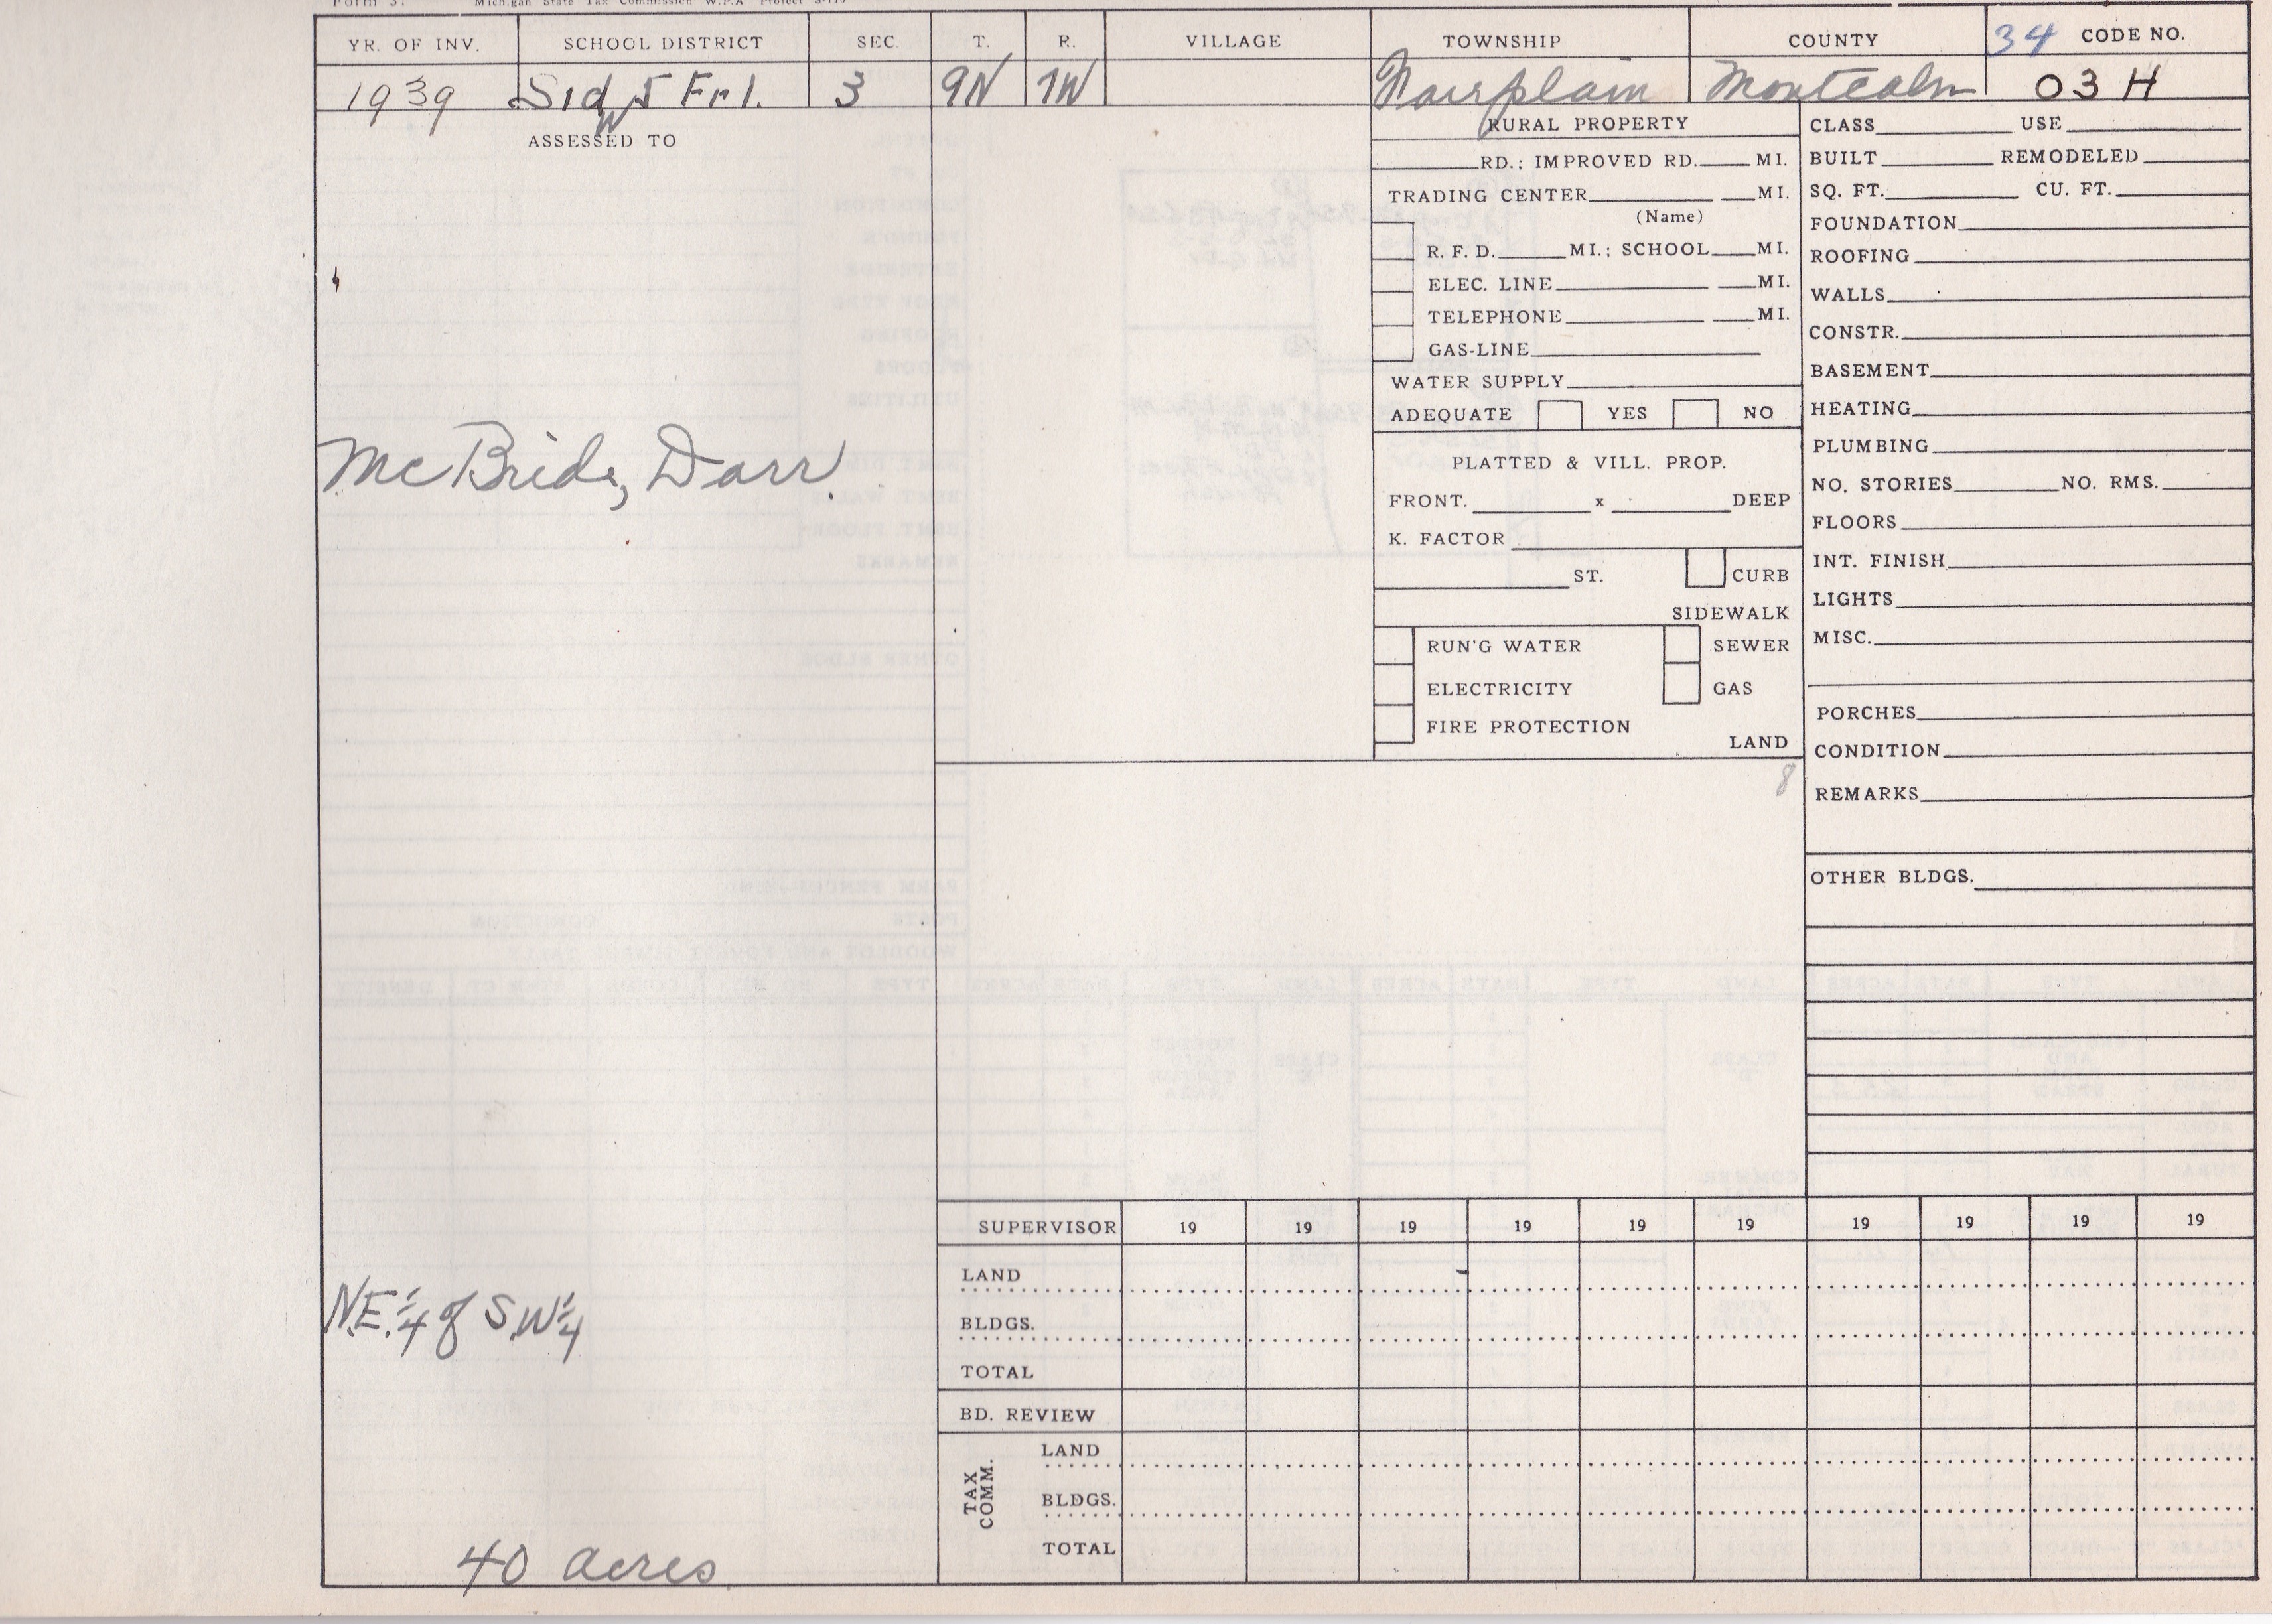 Michigan State Tax Commission W.P.A Project
YR. OF INV. SCHOOL DISTRICT SEC. T. R. VILLAGE TOWNSHIP COUNTY 34 CODE NO.
1939 5 Frl. 3 9N 7W Fairplain Montcalm 03 H
ASSESSED TO
McBride, Darr.
N.E. 1/4 of S.W 1/4
40 acres
RURAL PROPERTY
RD.; IMPROVED RD. MI.
TRADING CENTER MI.
(Name)
R. F. D. MI.; SCHOOL MI.
ELEC. LINE MI.
TELEPHONE MI.
GAS-LINE
WATER SUPPLY
ADEQUATE YES NO
PLATTED & VILL. PROP.
FRONT. x DEEP
K. FACTOR
ST. CURB
SIDEWALK
RUN'G WATER SEWER
ELECTRICITY GAS
FIRE PROTECTION
LAND
8
CLASS USE
BUILT REMODELED
SQ. FT. CU. FT.
FOUNDATION
ROOFING
WALLS
CONSTR.
BASEMENT
HEATING
PLUMBING
NO. STORIES NO. RMS.
FLOORS
INT. FINISH
LIGHTS
MISC.
PORCHES
CONDITION
REMARKS
OTHER BLDGS.
SUPERVISOR 19 19 19 19 19 19 19 19 19 19
LAND
BLDGS.
TOTAL
BD. REVIEW
TAX COMM.
LAND
BLDGS.
TOTAL